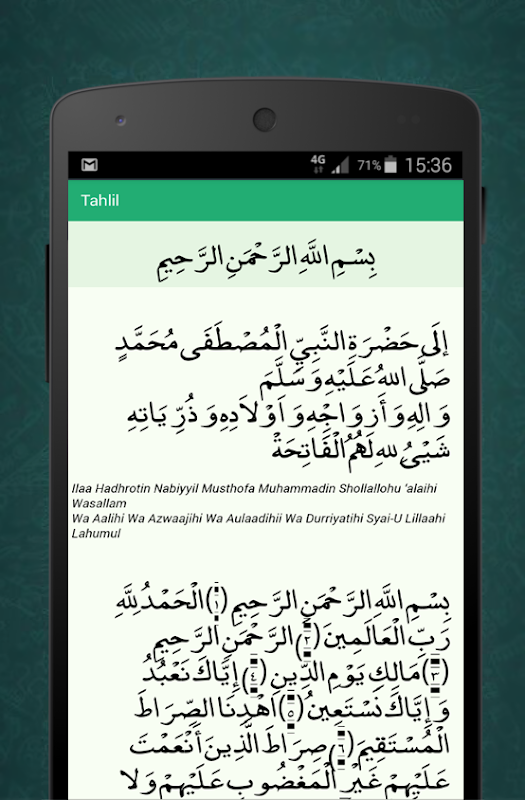 4G 71% 15:36
Tahlil
بِسْمِ اللَّهِ الرَّحْمَنِ الرَّحِيمِ
إِلَى حَضْرَةِ النَّبِيِّ الْمُصْطَفَى مُحَمَّدٍ
صَلَّى اللهُ عَلَيْهِ وَسَلَّمَ
وَالِهِ وَأَزوَاجِهِ وَاَوْلَادِهِ وَذُرِّيَاتِهِ
شَيْئُ لِلهِ لَهُمُ الْفَاتِحَةْ
Ilaa Hadhrotin Nabiyyil Musthofa Muhammadin Shollallohu 'alaihi
Wasallam
Wa Aalihi Wa Azwaajihi Wa Aulaadihii Wa Durriyatihi Syai-U Lillaahi
Lahumul
بِسْمِ اللَّهِ الرَّحْمَنِ الرَّحِيمِ (١) الْحَمْدُ لِلَّهِ
رَبِّ الْعَالَمِينَ (٢) الرَّحْمَنِ الرَّحِيمِ
(٣) مَالِكِ يَوْمِ الدِّينِ (٤) إِيَّاكَ نَعْبُدُ
وَإِيَّاكَ نَسْتَعِينُ (٥) اهْدِنَا الصِّرَاطَ
الْمُسْتَقِيمَ (٦) صِرَاطَ الَّذِينَ أَنْعَمْتَ
عَلَيْهِمْ غَيْرِ الْمَغْضُوبِ عَلَيْهِمْ وَلا